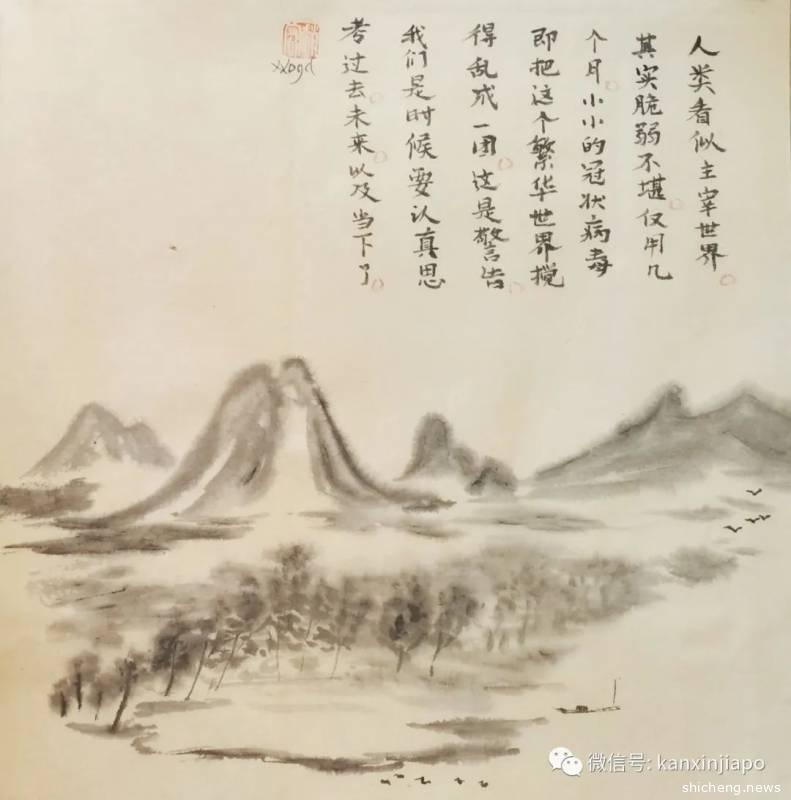 人类看似主宰世界。
其实脆弱不堪。仅用几
个月。小小的冠状病毒
即把这个繁华世界搅
得乱成一团。这是警告。
我们是时候要认真思
考过去。未来。以及当下了。
xxbgd
微信号: kanxinjiapo
shicheng.news